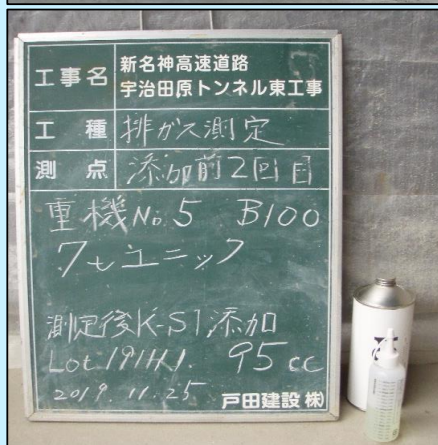 工事名
新名神高速道路
宇治田原トンネル東工事
工種 排ガス測定
測点 添加前2回目
重機No.5 B100
7tユニック
測定後K-S1添加
Lot 191H1. 95cc
2019.11.25 戸田建設㈱